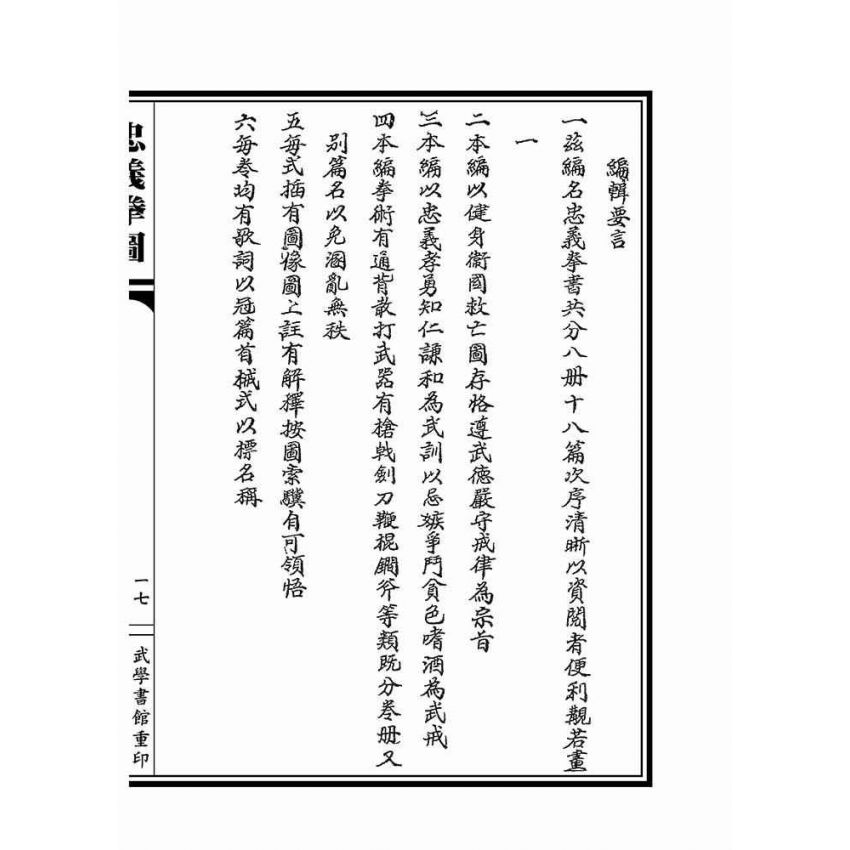 編輯要言
一茲編名忠義拳書共分八册十八篇次序清晰以資閱者便利觀若畫
一
二本編以健身衛國救亡圖存恪遵武德嚴守戒律為宗旨
三本編以忠義孝勇知仁謙和為武訓以忌嫉爭鬥貪色嗜酒為武戒
四本編拳術有通背散打武器有槍戟劍刀鞭棍鐧斧等類既分卷册又
別篇名以免溷亂無秩
五每式插有圖像圖上註有解釋按圖索驥自可領悟
六每卷均有歌詞以冠篇首械式以標名稱
忠義拳圖
一七
武學書館重印